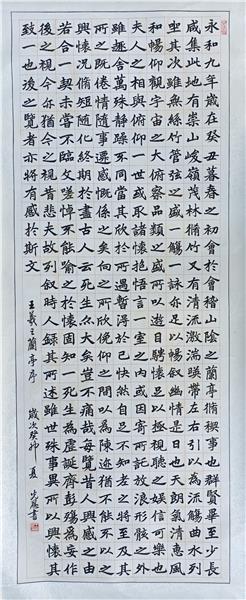 永和九年歲在癸丑暮春之初會於會稽山陰之蘭亭脩稧事也群賢畢至少長
咸集此地有崇山峻嶺茂林脩竹又有清流激湍暎帶左右引以為流觴曲水列
坐其次雖無絲竹管弦之盛一觴一詠亦足以暢叙幽情是日也天朗氣清惠風
和暢仰觀宇宙之大俯察品類之盛所以遊目騁懷足以極視聽之娛信可樂也
夫人之相與俯仰一世或取諸懷抱悟言一室之內或因寄所託放浪形骸之外
雖趣舍萬殊靜躁不同當其欣於所遇暫得於己快然自足不知老之將至及其
所之既惓情隨事遷感慨係之矣向之所欣俛仰之間以為陳迹猶不能不以之
興懷況脩短隨化終期於盡古人云死生亦大矣豈不痛哉每覽昔人興感之由
若合一契未嘗不臨文嗟悼不能喻之於懷固知一死生為虛誕齊彭殤為妄作
後之視今亦猶今之視昔悲夫故列叙時人錄其所述雖世殊事異所以興懷其
致一也後之覽者亦將有感於斯文
王羲之蘭亭序 歲次癸卯 夏 書